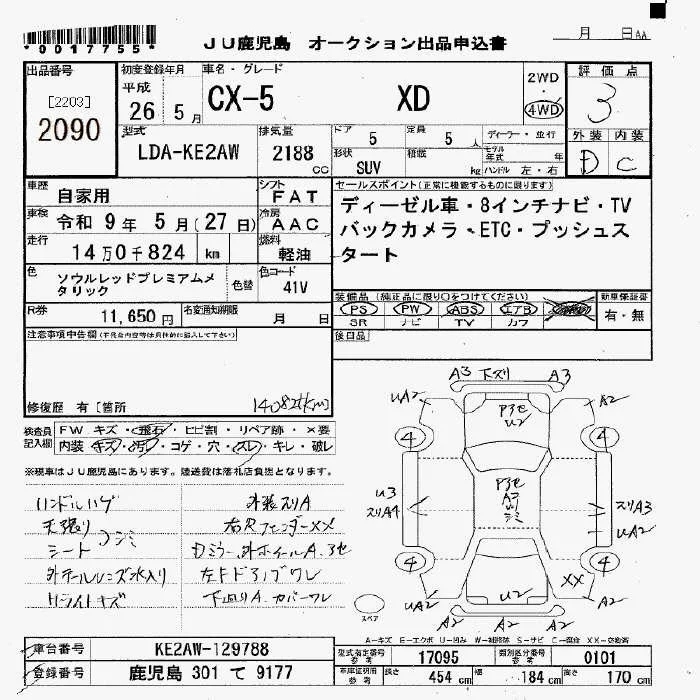 *0017755*
月 日 AA
JU鹿児島 オークション出品申込書
出品番号
[2203]
2090
初度登録年月
平成
26 5月
車名・グレード
CX-5 XD
2WD
・
4WD
評価点
3
外装 内装
D C
型式
LDA-KE2AW
排気量
2188
CC
ドア
5
定員
5人
ディーラー・並行
形状
SUV
積載
kg
モデル年式 年
ハンドル 左・右
車歴
自家用
シフト
FAT
車検
令和 9年 5月(27日)
冷房
AAC
走行
14万0千824 km
燃料
軽油
色
ソウルレッドプレミアムメタリック
色替
色コード
41V
R券
11,650円
名変通知期限
月 日
セールスポイント(正常に機能するものに限ります)
ディーゼル車・8インチナビ・TV
バックカメラ・ETC・プッシュス
タート
装備品(純正品に限り○をつけてください)
PS PW ABS エアB
SR ナビ TV カワ
新車保証書
有・無
後日品
注意事項申告欄
修復歴 有[箇所
140824km
検査員
記入欄
FW キズ・飛石・ヒビ割・リペア跡・×要
内装 キズ・汚レ・コゲ・穴・スレ・キレ・破レ
※現車はJU鹿児島にあります。陸送費は落札店負担となります。
ハンドルハゲ
天張り
シート
シミ
外テールレンズ水入り
Hライトキズ
外装スリA
右Rフェンダー XX
Dミラー、外ホイールA
下回りA カバーワレ
A3 下スリ A3
UA2
A2
4
4
U2
U3
スリA4
スリA3
UA2
4
4
XX
U2
UA2
A2
A2
A2
A2
スペア
A-キズ E-エクボ U-凹み W-補修跡 S-サビ C-腐食 XX-交換済
車台番号
KE2AW-129788
登録番号
鹿児島 301 て 9177
型式指定番号
参考
17095
類別区分番号
参考
0101
車庫証明用
参考
長さ
454 cm
幅
184 cm
高さ
170 cm